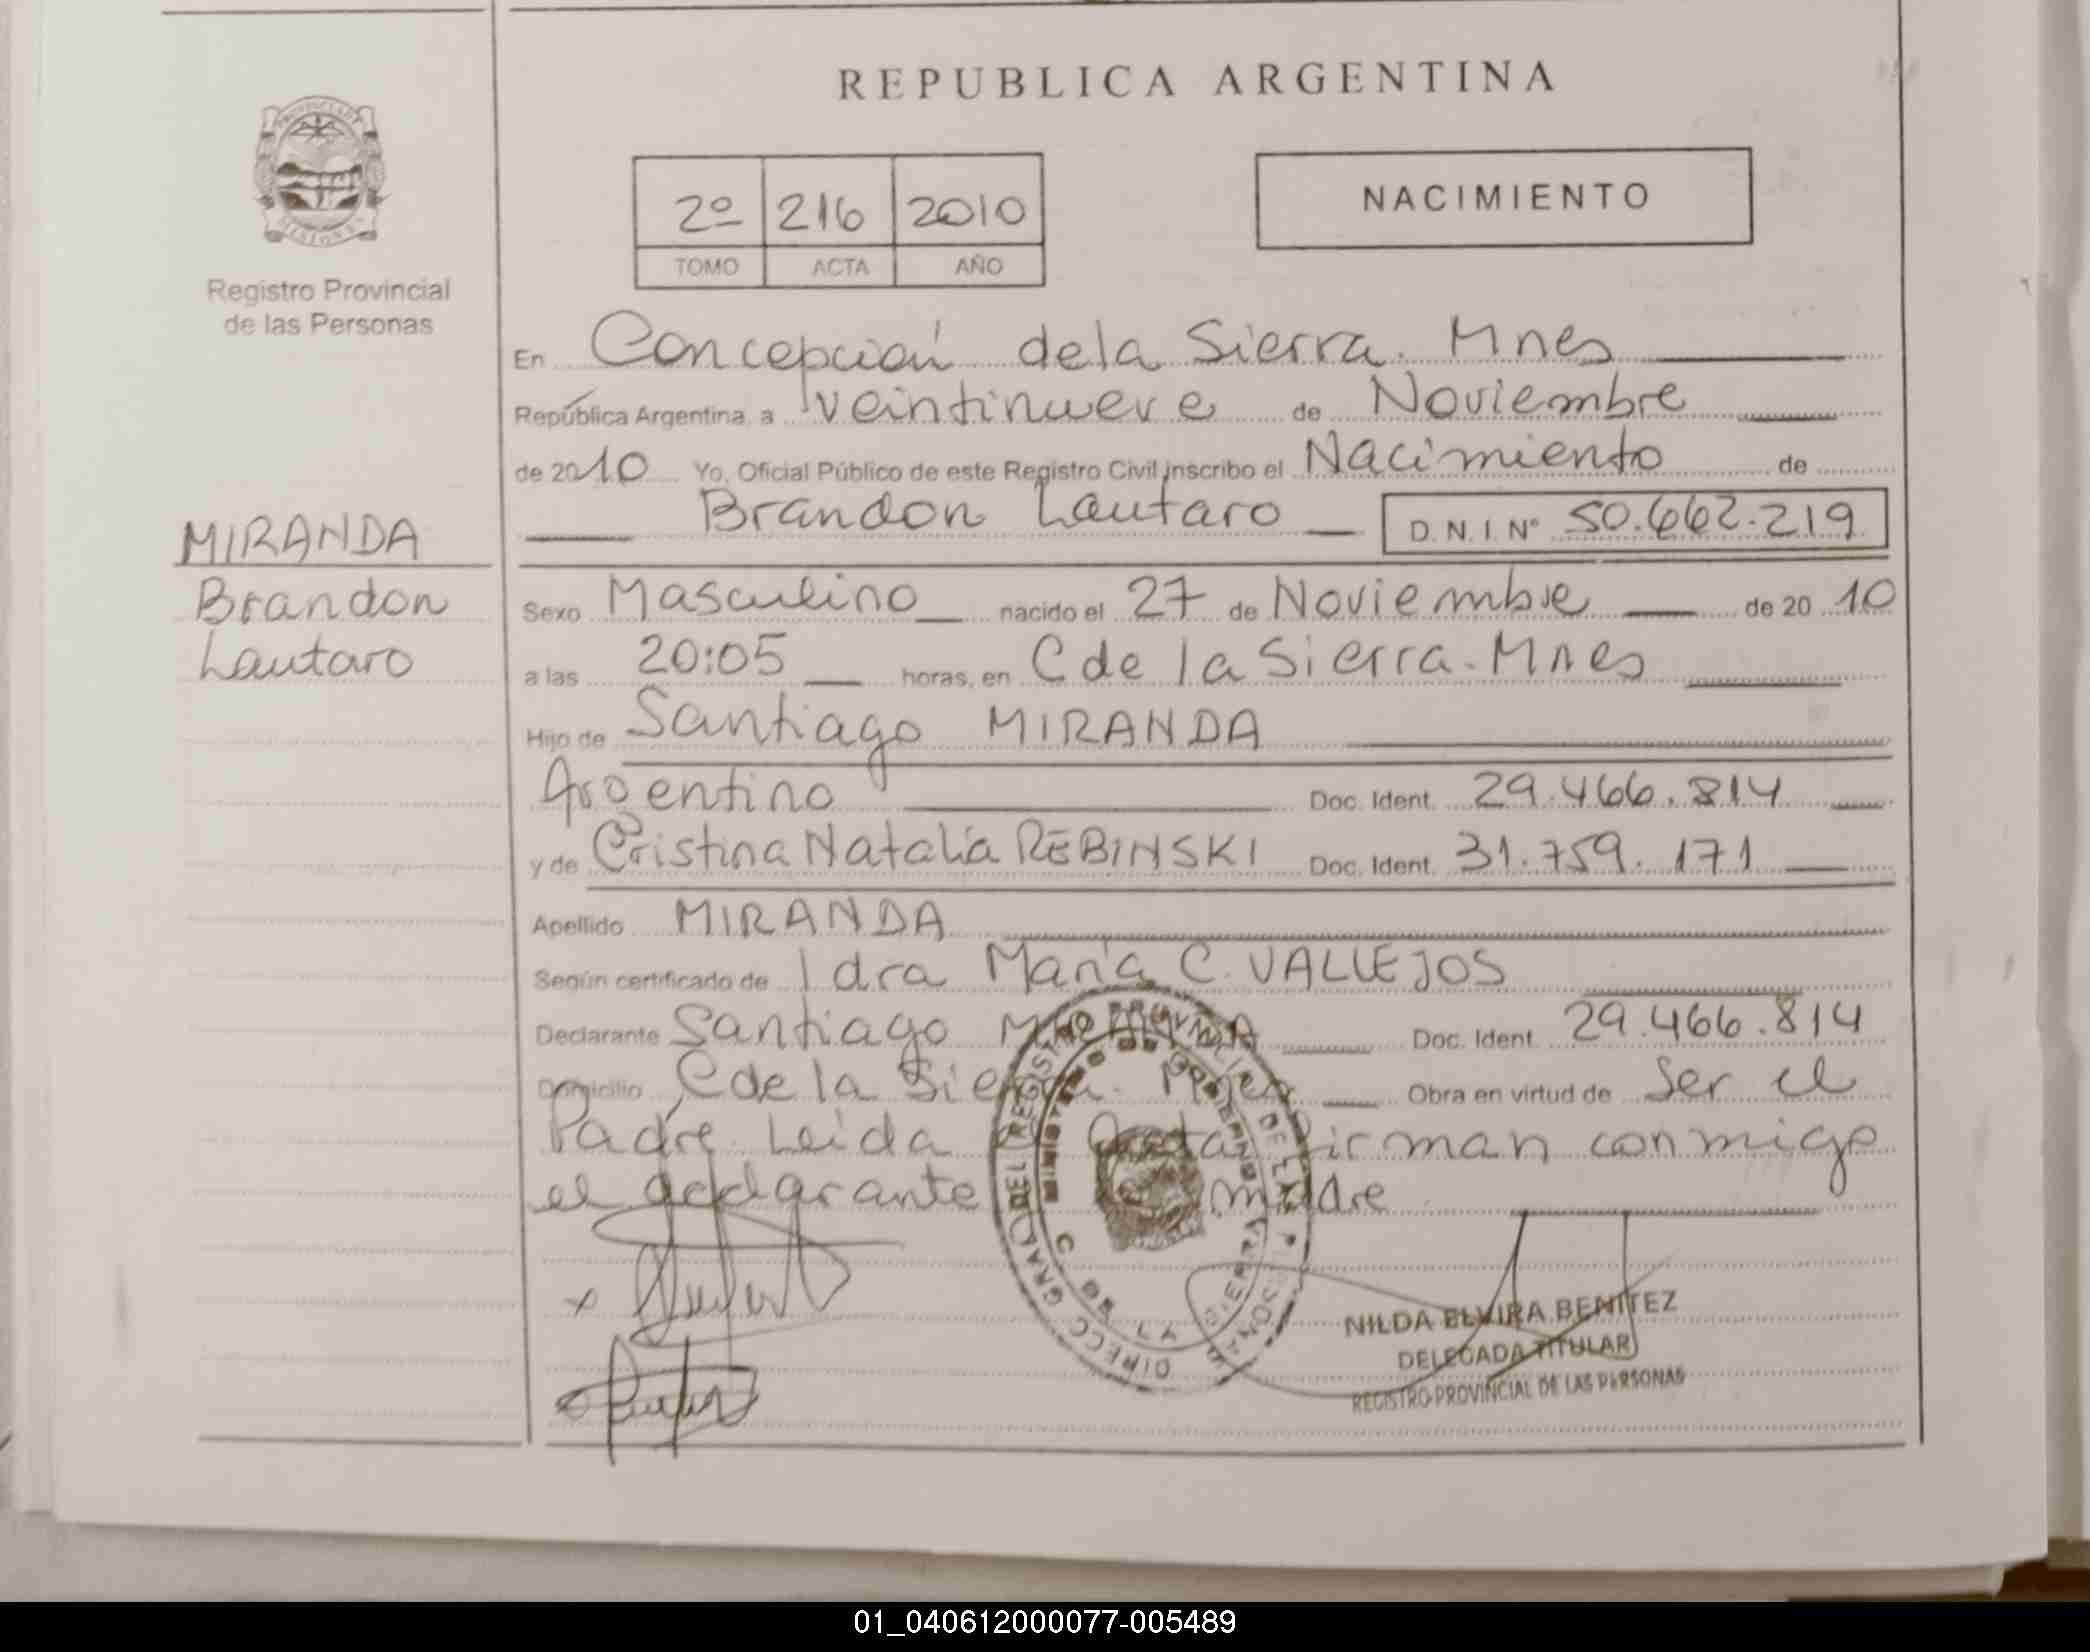 REPUBLICA ARGENTINA
PROVINCIA DE
MISIONES
Registro Provincial
de las Personas
2º 216 2010
TOMO ACTA AÑO
NACIMIENTO
En Concepción de la Sierra. Mnes
República Argentina, a veintinueve de Noviembre
de 2010 Yo, Oficial Público de este Registro Civil inscribo el Nacimiento de
Brandon Lautaro D.N.I. Nº 50.662.219
MIRANDA
Brandon
Lautaro
Sexo Masculino nacido el 27 de Noviembre de 2010
a las 20:05 horas, en C de la Sierra. Mnes
Hijo de Santiago MIRANDA
Argentino Doc. Ident. 29.466.814
y de Cristina Natalia REBINSKI Doc. Ident. 31.759.171
Apellido MIRANDA
Según certificado de dra María C. VALLEJOS
Declarante Santiago MIRANDA Doc. Ident. 29.466.814
Domicilio C de la Sierra. Mnes Obra en virtud de Ser el
Padre Leida Acta firman conmigo
el declarante madre
DIRECC GRAL DEL REGISTRO PROVINCIAL DE LAS PERSONAS
MINISTERIO DE GOBIERNO
C DE LA SIERRA
NILDA ELVIRA BENITEZ
DELEGADA TITULAR
REGISTRO PROVINCIAL DE LAS PERSONAS
01_040612000077-005489